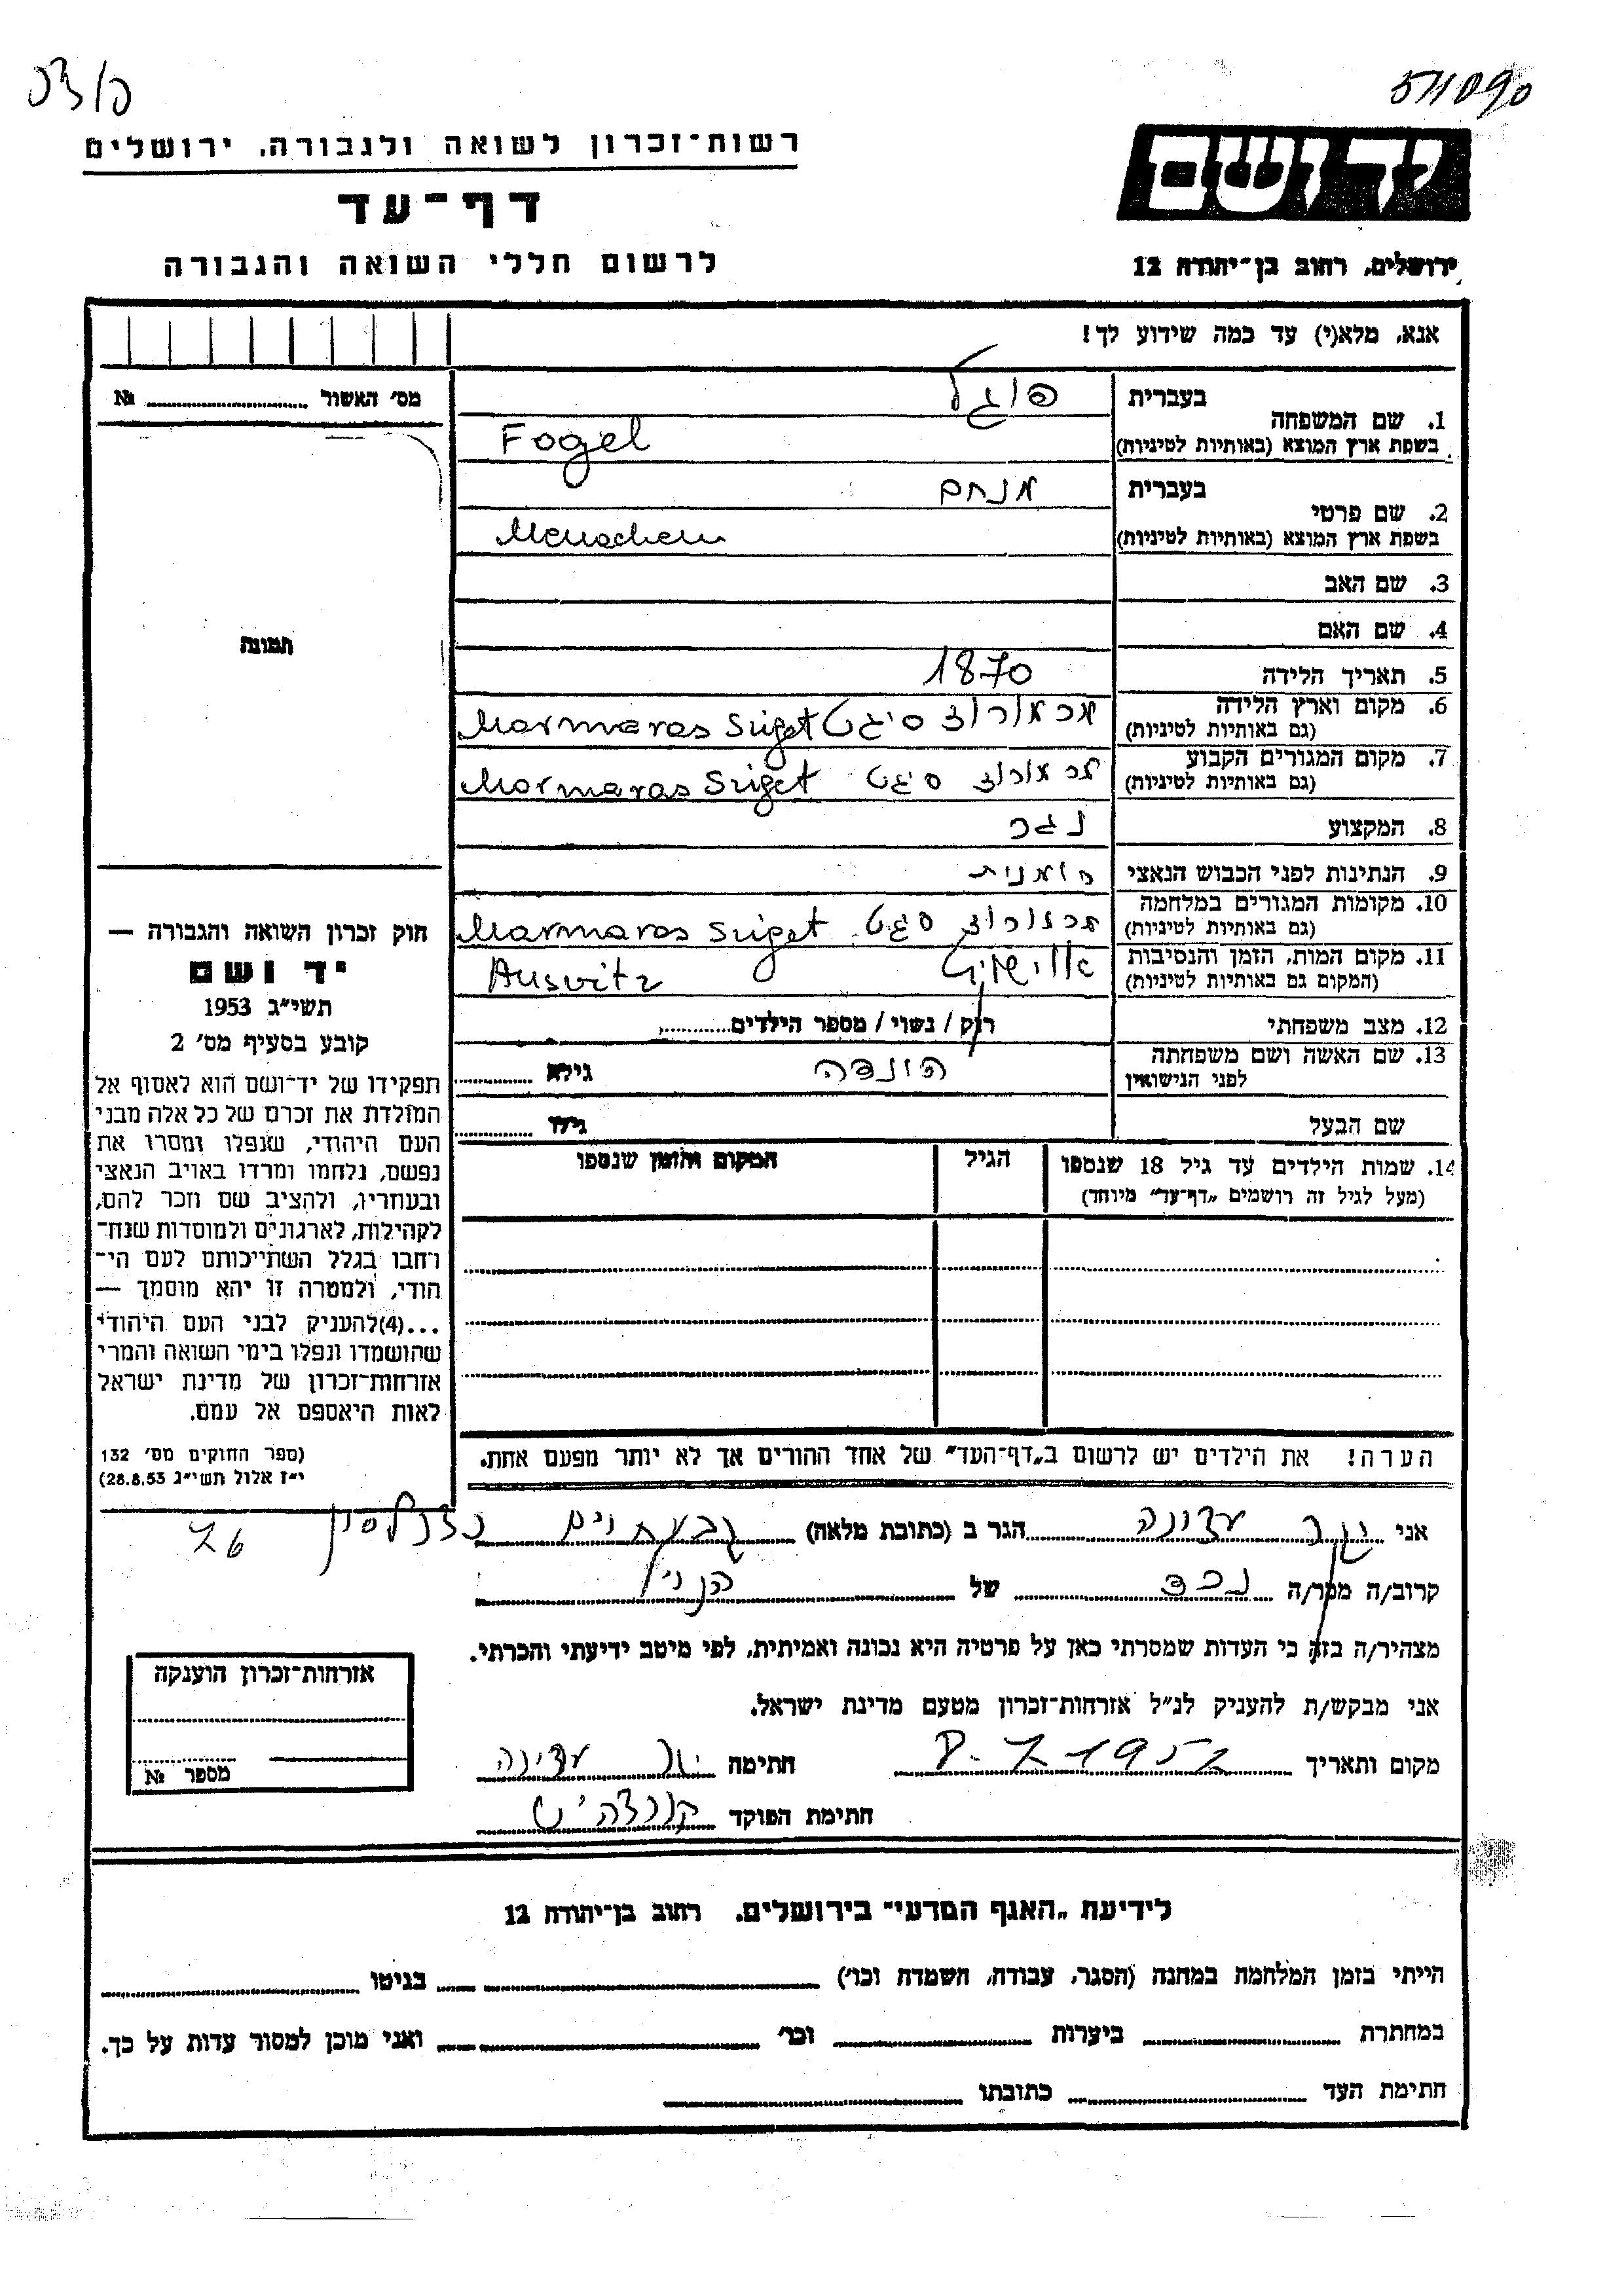 511090
רשות־זכרון לשואה ולגבורה, ירושלים
דף־עד
לרשום חללי השואה והגבורה
יד ושם
ירושלים, רחוב בן־יהודה 12
אנא, מלא(י) עד כמה שידוע לך!
מס׳ האשור № 
1. שם המשפחה בעברית פוגל
בשפת ארץ המוצא (באותיות לטיניות) Fogel
2. שם פרטי בעברית מנחם
בשפת ארץ המוצא (באותיות לטיניות) Menachem
3. שם האב
4. שם האם
5. תאריך הלידה 1870
6. מקום וארץ הלידה
(גם באותיות לטיניות) מרמורוצ סיגט Marmaras Sziget
7. מקום המגורים הקבוע
(גם באותיות לטיניות) מרמורוצ סיגט Marmaras Sziget
8. המקצוע נגר
9. הנתינות לפני הכבוש הנאצי רומנית
10. מקומות המגורים במלחמה
(גם באותיות לטיניות) מרמורוצ סגט Marmaras Sziget
11. מקום המות, הזמן והנסיבות
(המקום גם באותיות לטיניות) אושויץ Ausvitz
12. מצב משפחתי רוק / נשוי / מספר הילדים
13. שם האשה ושם משפחתה
לפני הנישואין הונדה גילה
שם הבעל גילו
14. שמות הילדים עד גיל 18 שנספו
(מעל לגיל זה רושמים „דף־עד״ מיוחד)
הגיל
המקום והזמן שנספו
הערה! את הילדים יש לרשום ב„דף־העד״ של אחד ההורים אך לא יותר מפעם אחת.
תמונה
חוק זכרון השואה והגבורה —
יד ושם
תשי״ג 1953
קובע בסעיף מס׳ 2
תפקידו של יד־ושם הוא לאסוף אל
המולדת את זכרם של כל אלה מבני
העם היהודי, שנפלו ומסרו את
נפשם, נלחמו ומרדו באויב הנאצי
ובעוזריו, ולהציב שם וזכר להם,
לקהילות, לארגונים ולמוסדות שנח־
רחבו בגלל השתייכותם לעם הי־
הודי, ולמטרה זו יהא מוסמך —
...(4)להעניק לבני העם היהודי
שהושמדו ונפלו בימי השואה והמרי
אזרחות־זכרון של מדינת ישראל
לאות היאספם אל עמם.
(ספר החוקים מס׳ 132
י״ז אלול תשי״ג 28.8.53)
אני עדינה הגר ב (כתובת מלאה) גבעתיים כצנלסון 76
קרוב/ה מכר/ה נכד של הנ״ל
מצהיר/ה בזה כי העדות שמסרתי כאן על פרטיה היא נכונה ואמיתית, לפי מיטב ידיעתי והכרתי.
אני מבקש/ת להעניק לנ״ל אזרחות־זכרון מטעם מדינת ישראל.
מקום ותאריך חתימה עדינה
חתימת הפוקד
אזרחות־זכרון הוענקה
מספר №
לידיעת „האגף המדעי״ בירושלים, רחוב בן־יהודה 12
הייתי בזמן המלחמה במחנה (הסגר, עבודה, השמדה וכו׳) בגיטו
במחתרת ביערות וכו׳ ואני מוכן למסור עדות על כך.
חתימת העד כתובתו